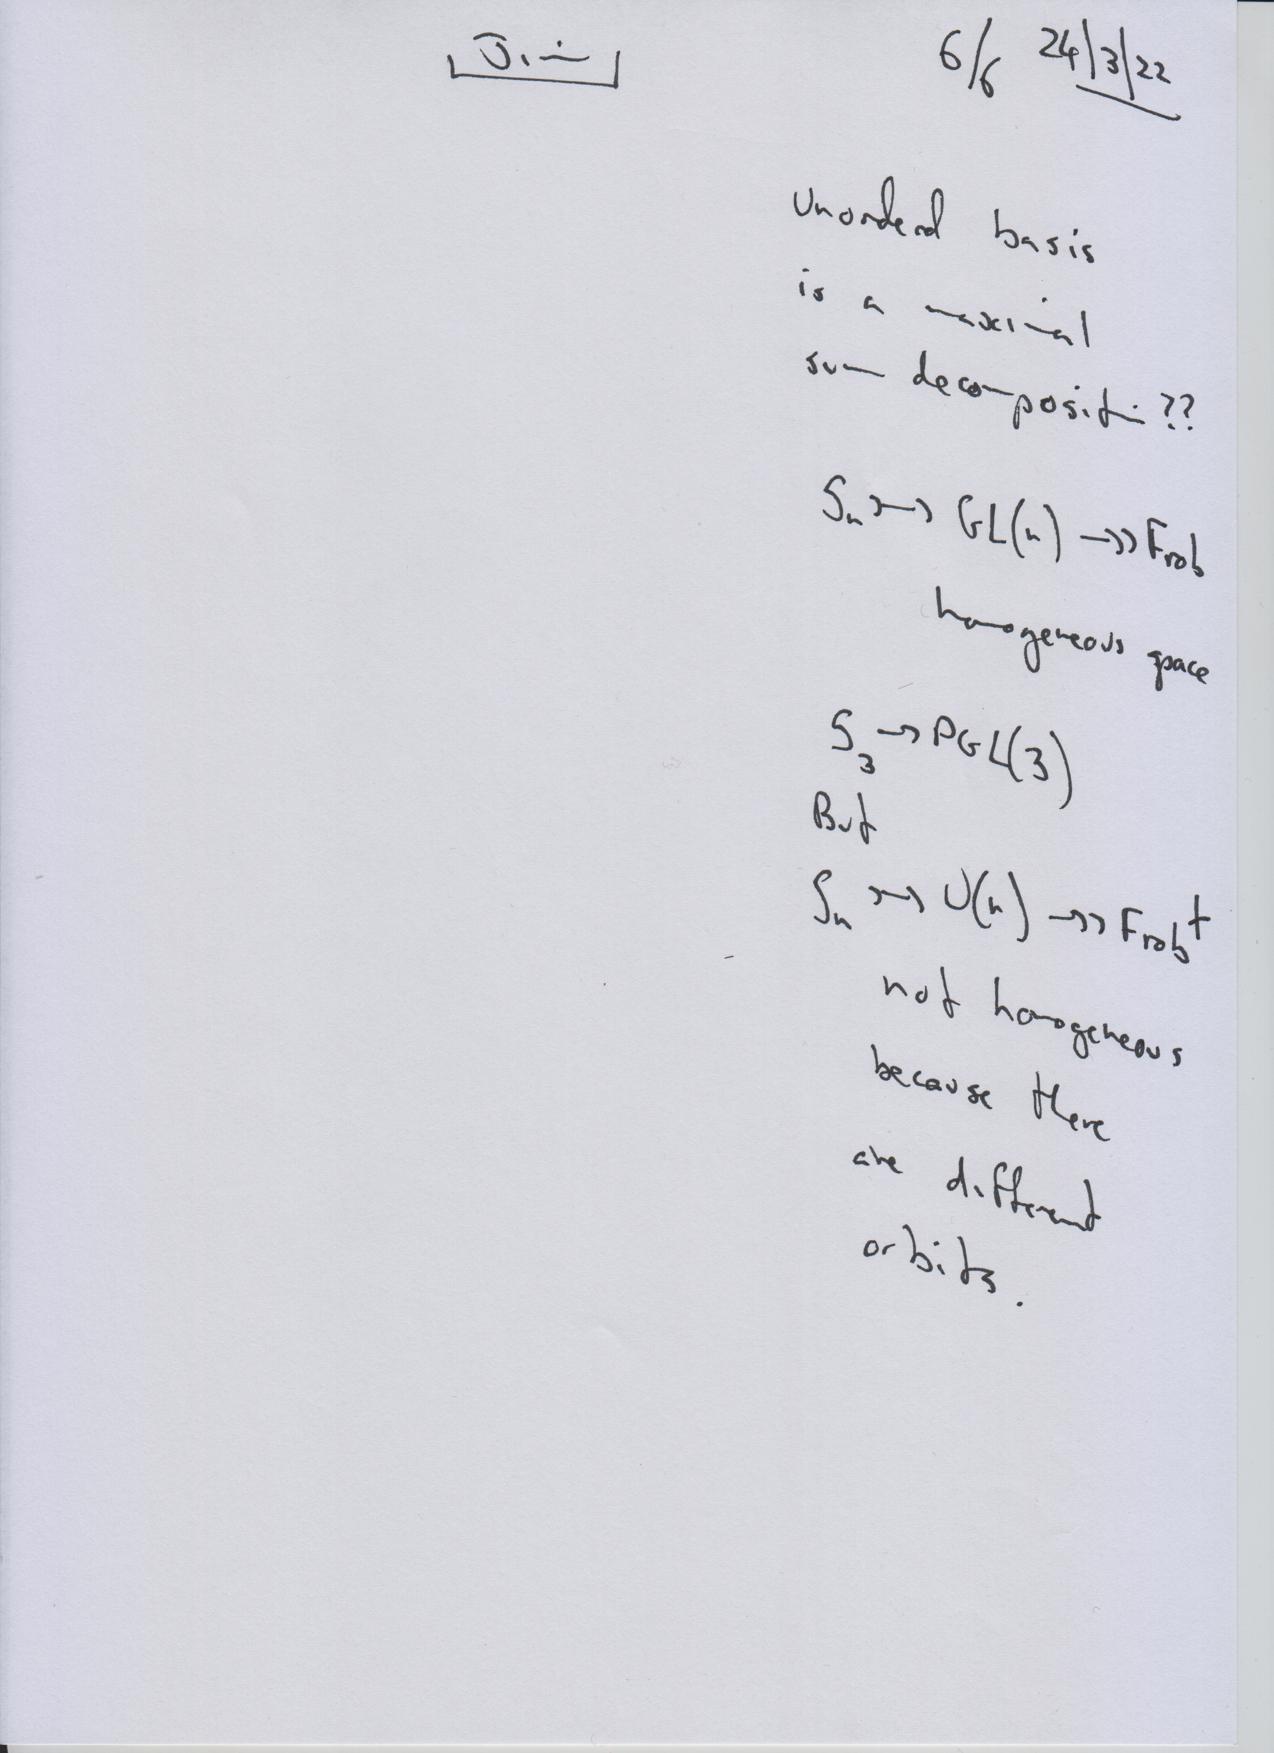 Jim 6/6 24/3/22
Unorderd basis
is a maximal
sum decomposition??
Sₙ ↣ GL(n) ↠ Frob
homogeneous space
S₃ → PGL(3)
But
Sₙ ↣ U(n) ↠ Frob†
not homogeneous
because there
are different
orbits.